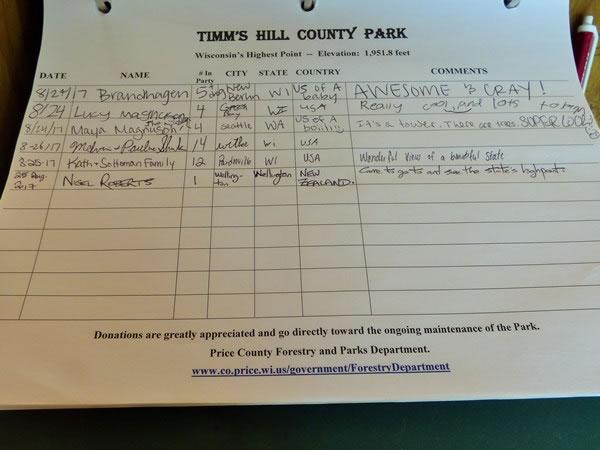 TIMM'S HILL COUNTY PARK
Wisconsin's Highest Point -- Elevation: 1,951.8 feet
DATE NAME # In Party CITY STATE COUNTRY COMMENTS
8/24/17 Brandhagen 5 New Berlin WI US of A AWESOME & CRAY!
8/24 Lucy Magnuson 4 Green Bay WI USA Really cool, and lots to
8/24/17 Maya Magnuson 4 seattle WA US of A It's a tower. There are trees. SUPER COOL
8-26-17 14 WI USA
8-25-17 Kath + Family 12 WI USA Wonderful view of a beautiful State
25 Aug. 2017 NIGEL ROBERTS 1 Wellington Wellington NEW ZEALAND. Came to gate and see the state's highpoint.
Donations are greatly appreciated and go directly toward the ongoing maintenance of the Park.
Price County Forestry and Parks Department.
www.co.price.wi.us/government/ForestryDepartment